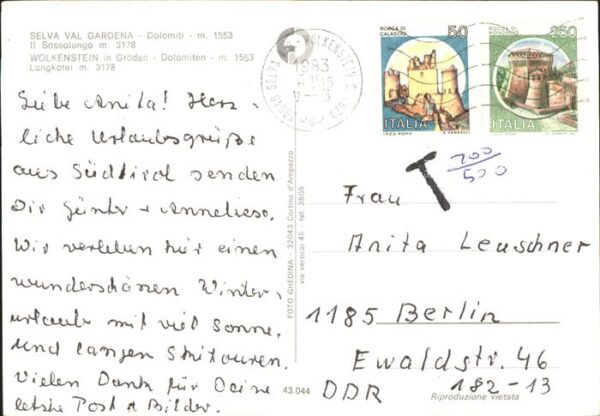 SELVA VAL GARDENA - Dolomiti - m. 1553
Il Sassolungo m. 3178
WOLKENSTEIN in Gröden - Dolomiten - m. 1553
Langkofel m. 3178
Liebe Anita! Herz-
liche Urlaubsgrüße
aus Südtirol senden
Dir Günter + Annelies.
Wir verleben hier einen
wunderschönen Winter-
urlaub mit viel Sonne
und langen Skitouren.
Vielen Dank für Deine
letzte Post + Bilder.
FOTO GHEDINA - 32043 Cortina d'Ampezzo
via verocai 45 - tel. 3505
43.044
SELVA
WOLKENSTEIN
1983
ROCCA DI CALASCIO
50
ITALIA
ROCCA DI MONDAVIO
250
ITALIA
T
700/500
Frau
Anita Leuschner
1185 Berlin
Ewaldstr. 46
182-13
DDR
Riproduzione vietata